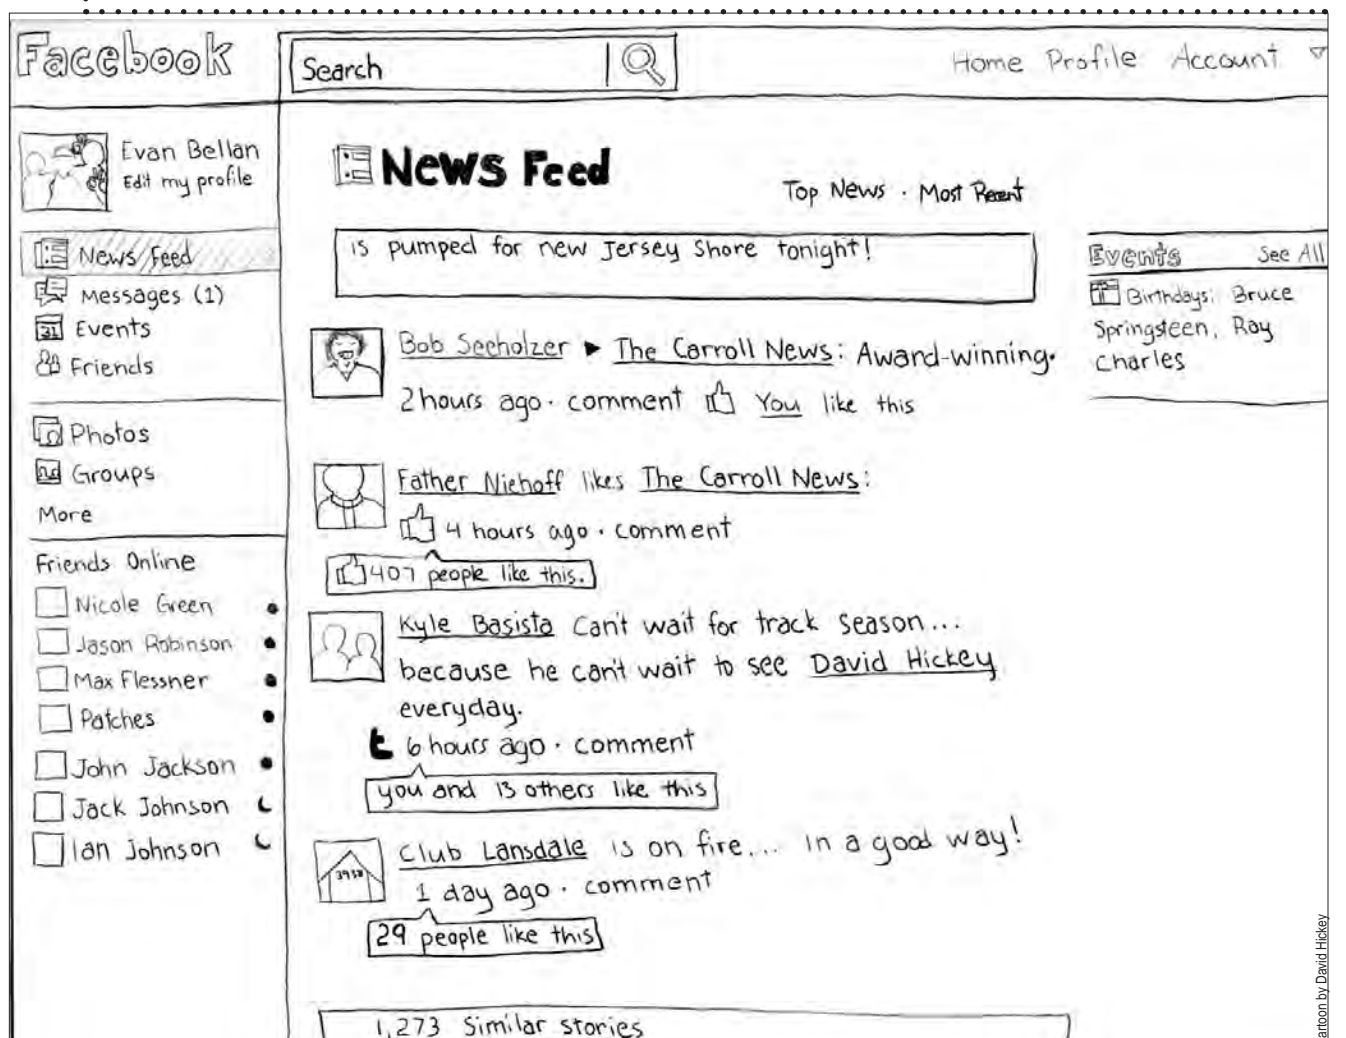 Facebook
Search
Home Profile Account
Evan Bellan
Edit my profile
News Feed
Messages (1)
31 Events
Friends
Photos
Groups
More
Friends Online
Nicole Green
Jason Robinson
Max Flessner
Patches
John Jackson
Jack Johnson
Ian Johnson
News Feed
Top News · Most Recent
is pumped for new Jersey Shore tonight!
Bob Seeholzer ▸ The Carroll News: Award-winning.
2 hours ago · comment You like this
Father Niehoff likes The Carroll News:
4 hours ago · comment
407 people like this.
Kyle Basista Can't wait for track season...
because he can't wait to see David Hickey
everyday.
t 6 hours ago · comment
you and 13 others like this
3958
Club Lansdale is on fire.... in a good way!
1 day ago · comment
29 people like this
1,273 Similar stories
Events See All
Birthdays: Bruce
Springsteen, Ray
Charles
artoon by David Hickey